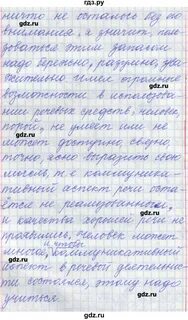 ничто не осталось без её
внимания, а значит, поль-
зоваться этим запасом
надо бережно, разумно, ува-
жительно. Имея огромные
возможности в использова-
нии речевых средств, человек,
порой, не умеет или не
может доступно, связно,
точно, ясно выразить свою
мысль, т. е. коммуника-
тивный аспект речи оста-
ётся не реализованным,
и качества хорошей речи не
проявились. Человек может
многое, и чтобы коммуникативный
аспект в речевой деятельно-
сти состоялся, этому надо
учиться.
gdz.ru
gdz.ru
gdz.ru
gdz.ru
gdz.ru
gdz.ru
gdz.ru